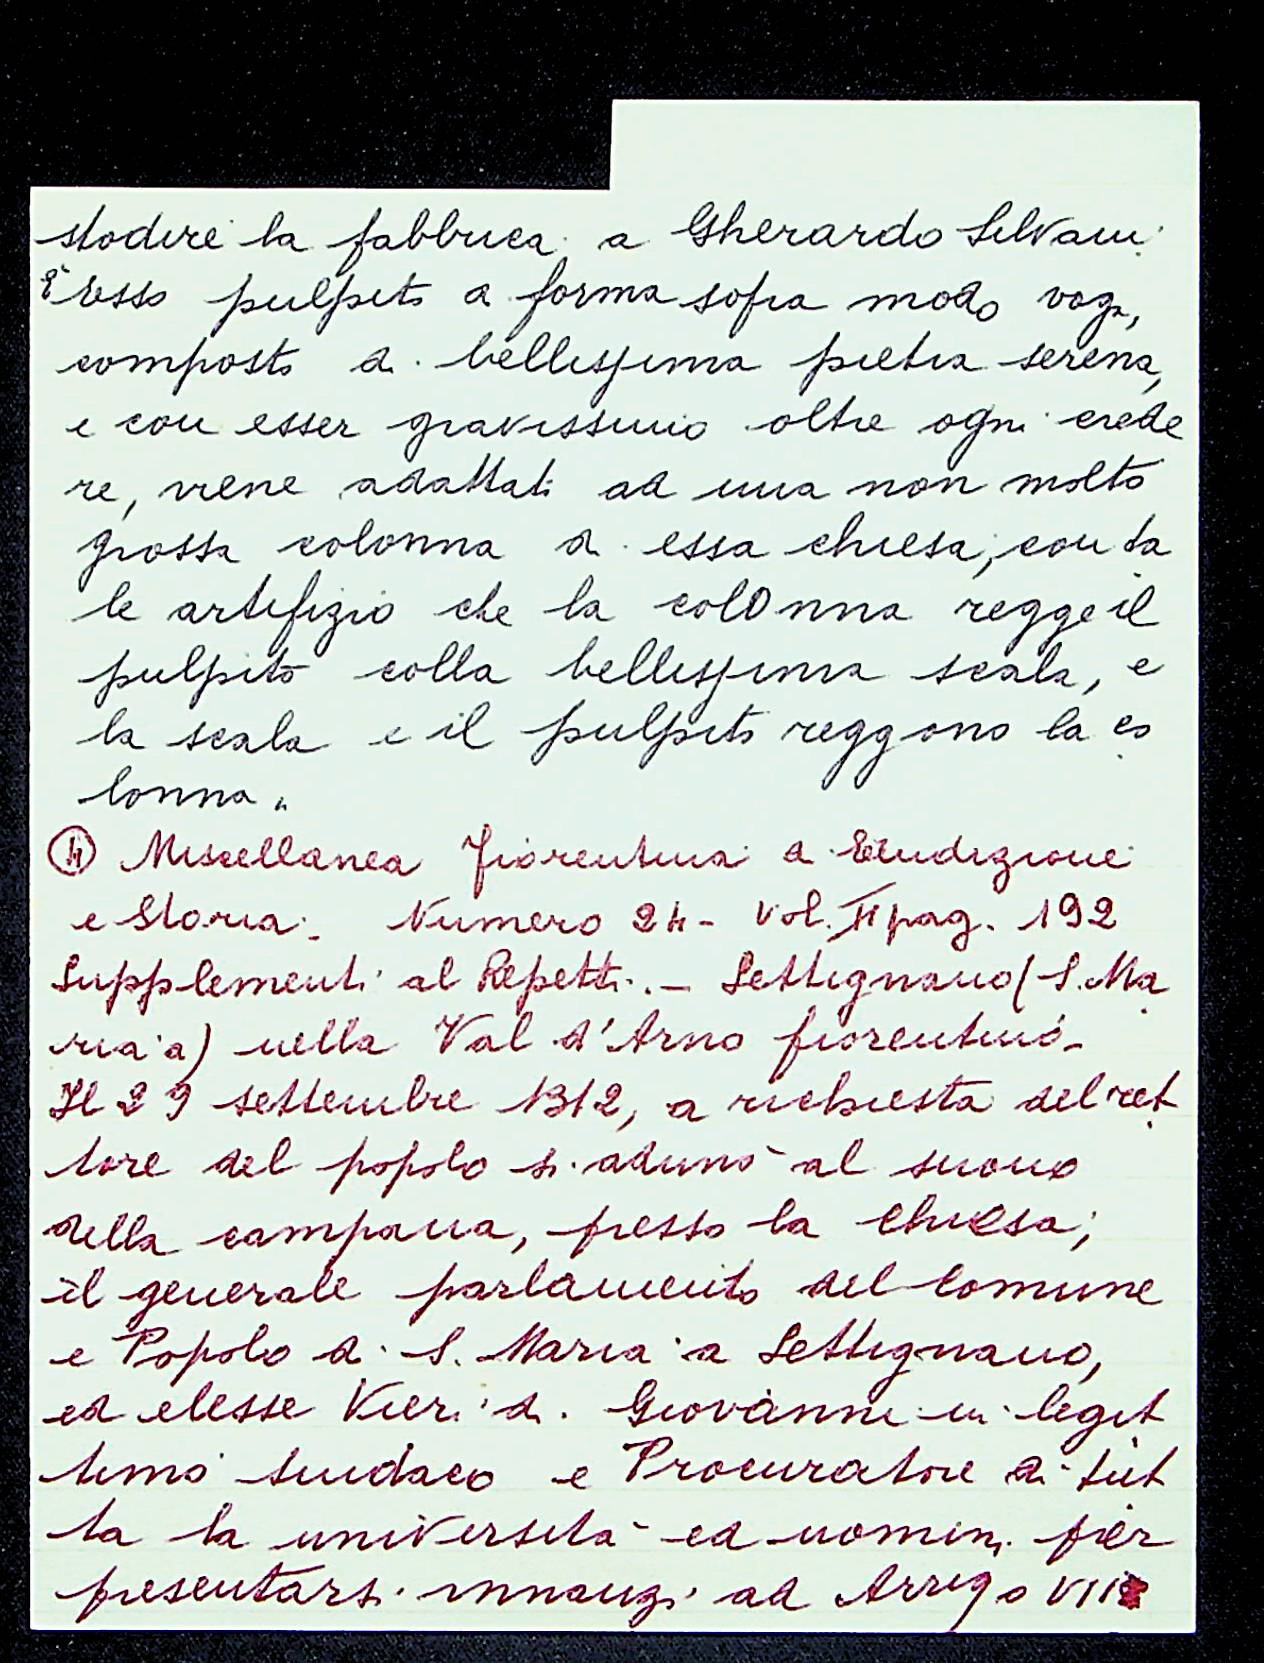 stodire la fabbrica a Gherardo Silvani
È esso pulpito di forma sopra modo vaga,
composto di bellissima pietra serena,
e con esser gravissimo oltre ogni crede
re, viene adattato ad una non molto
grossa colonna di essa chiesa, con ta
le artifizio che la colonna regge il
pulpito colla bellissima scala, e
la scala e il pulpito reggono la co
lonna"
④ Miscellanea Fiorentina di Erudizione
e Storia. Numero 24 - Vol. II pag. 192
Supplementi al Repetti. - Settignano (S. Ma
ria a) nella Val d'Arno fiorentino -
Il 29 settembre 1312, a richiesta del ret
tore del popolo si adunò al suono
della campana, presso la Chiesa;
il generale parlamento del Comune
e Popolo di S. Maria a Settignano,
ed elesse Vieri di Giovanni in legit
timo sindaco e Procuratore di tut
ta la università ed uomini per
presentarsi innanzi ad Arrigo VII